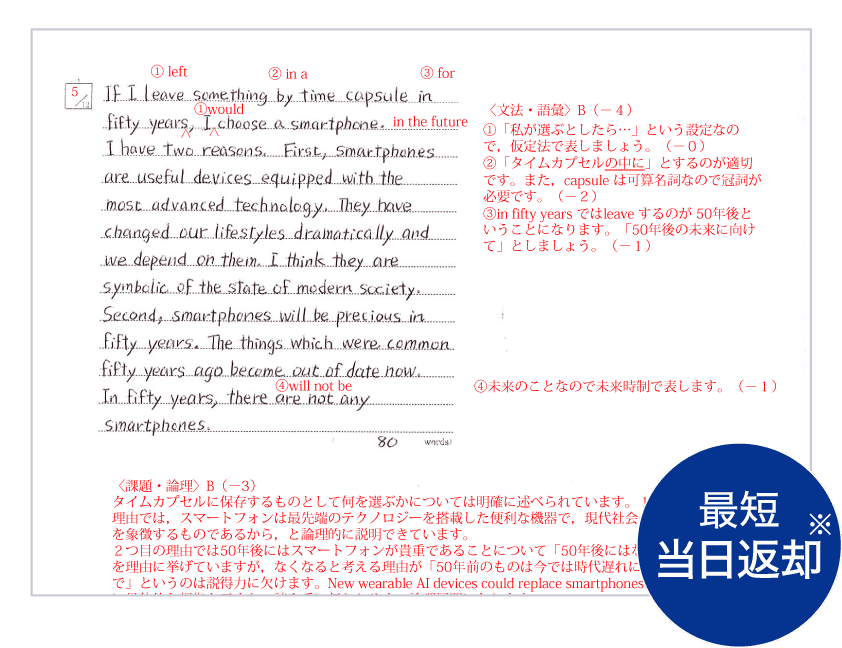 ① left ② in a ③ for
5
12
If I leave something by time capsule in
①would
fifty years, I choose a smartphone. in the future
I have two reasons. First, smartphones
are useful devices equipped with the
most advanced technology. They have
changed our lifestyles dramatically and
we depend on them. I think they are
symbolic of the state of modern society.
Second, smartphones will be precious in
fifty years. The things which were common
fifty years ago become out of date now.
④will not be
In fifty years, there are not any
smartphones.
80 words)
〈文法・語彙〉B(－4)
①「私が選ぶとしたら…」という設定なの
で，仮定法で表しましょう。(－0)
②「タイムカプセルの中に」とするのが適切
です。また，capsule は可算名詞なので冠詞が
必要です。(－2)
③in fifty years ではleave するのが 50年後と
いうことになります。「50年後の未来に向け
て」としましょう。(－1)
④未来のことなので未来時制で表します。(－1)
〈課題・論理〉B(－3)
タイムカプセルに保存するものとして何を選ぶかについては明確に述べられています。
理由では，スマートフォンは最先端のテクノロジーを搭載した便利な機器で，現代社会
を象徴するものであるから，と論理的に説明できています。
２つ目の理由では50年後にはスマートフォンが貴重であることについて「50年後には
を理由に挙げていますが，なくなると考える理由が「50年前のものは今では時代遅れに
で」というのは説得力に欠けます。New wearable AI devices could replace smartphones
最短
当日返却※